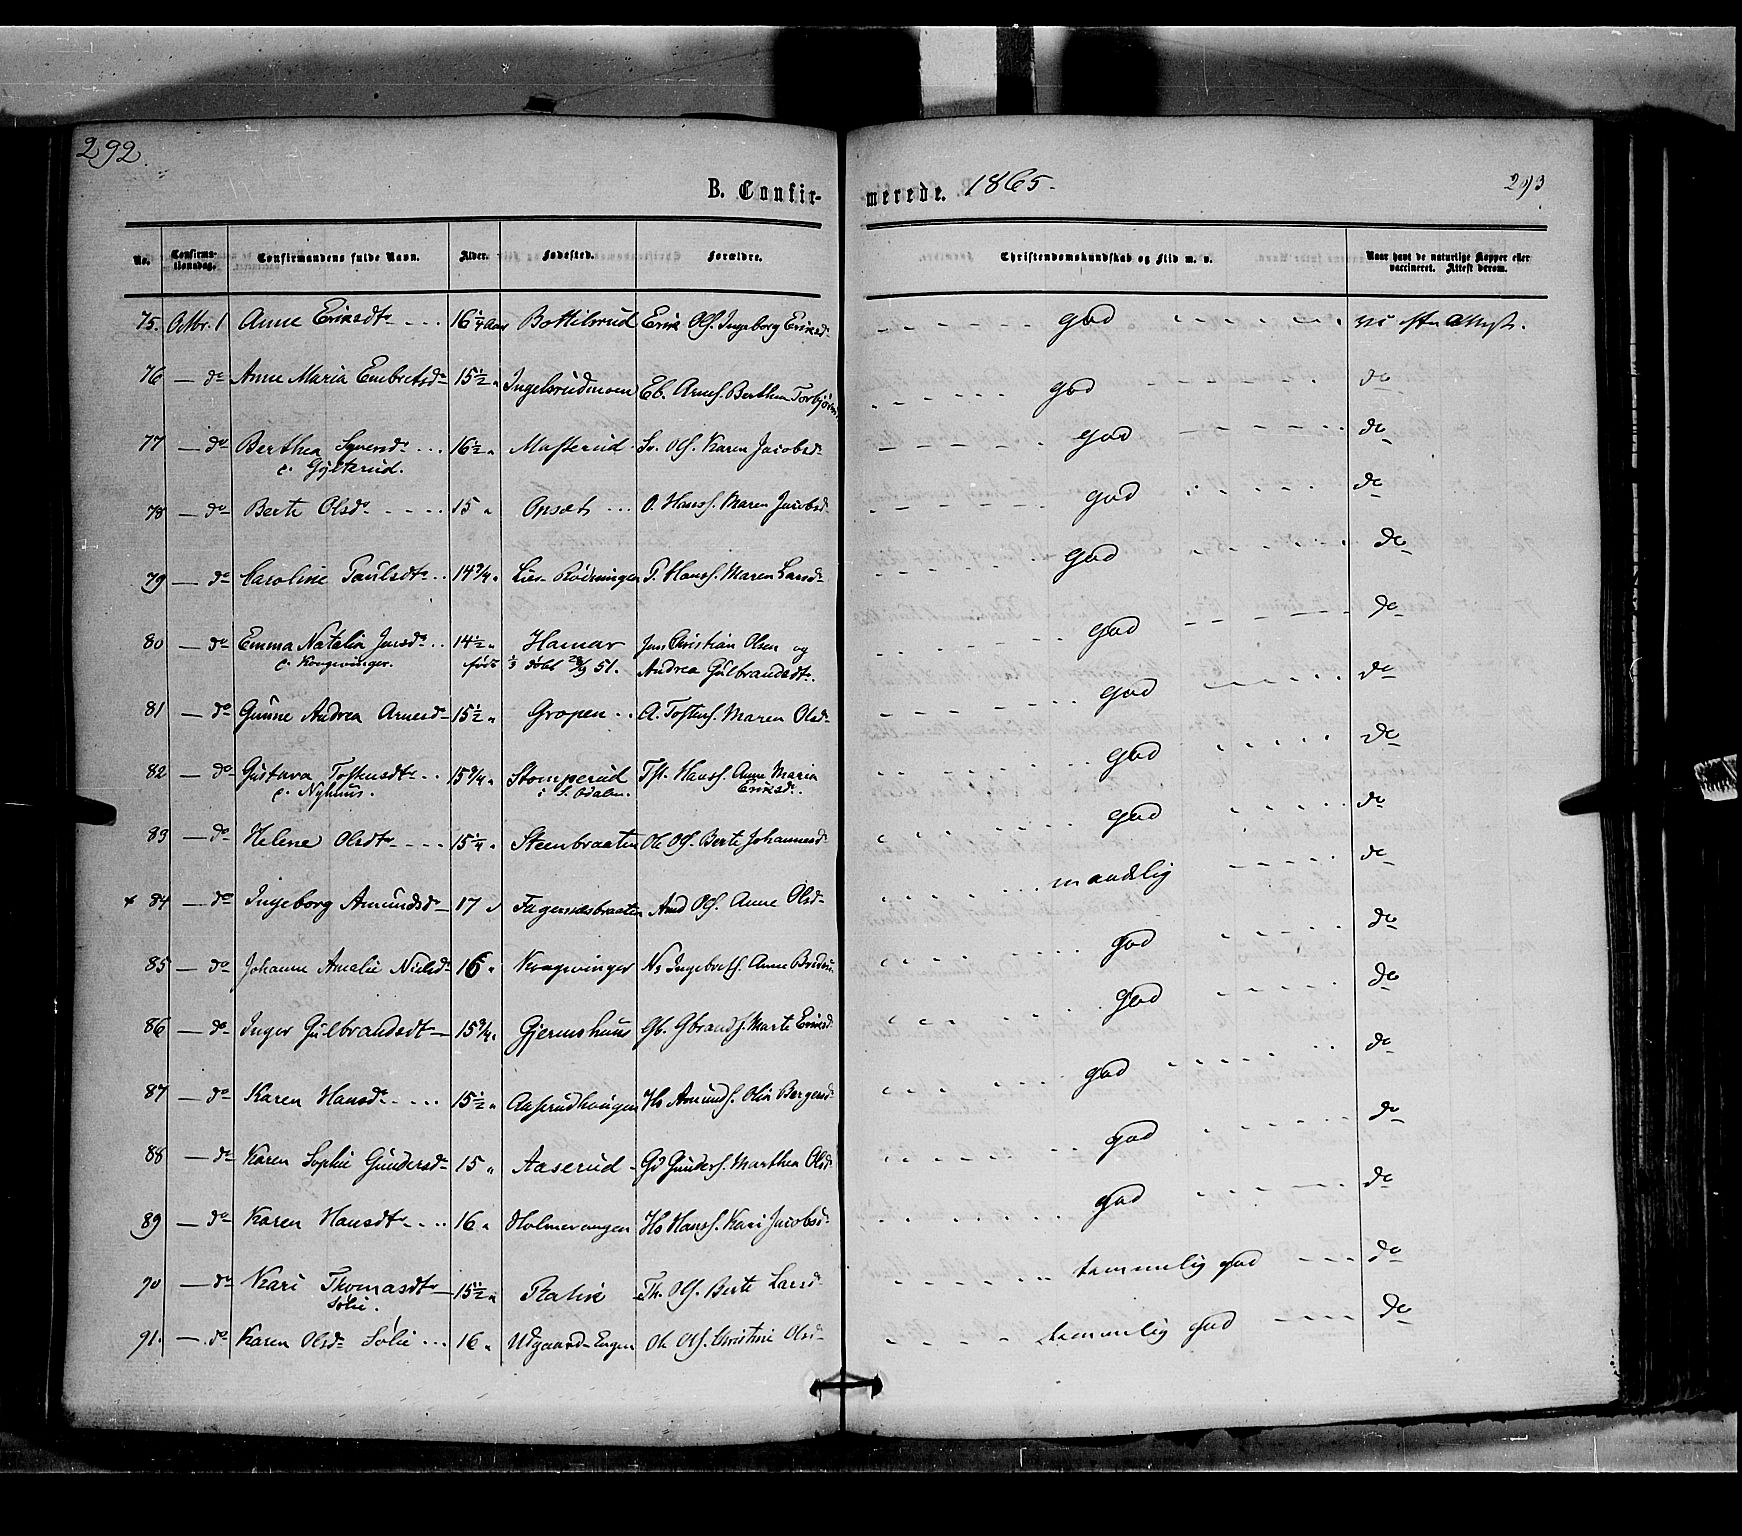 292.
B. Confir-
merede. 1865.
293
No. Confirma-tionsdag. Confirmandens fulde Navn. Alder. Fødested. Forældre. Christendomskundskab og Flid m. v. Naar havt de naturlige Kopper eller vaccineret. Attest derom.
75. Octbr. 1 Anne Eriksdtr 16 1/4 Aar Bottilsrud Erik Ols. Ingeborg Eriksd. god
76 — do Anne Maria Embretsdr 15 1/2 " Ingelsrudmoen Eb. Arnes. Berthea Torbjørns god do
77 — do Berthea Svensdr 16 1/2 " Masterud Sv. Ols. Karen Jacobsdr god do
e. Gylterud.
78 — do Berte Olsdr 15 " Opset O. Hanss. Maren Jacobsd god do
79 — do Caroline Paulsdtr 14 3/4 " Lier-Rødningen P. Hanss. Maren Larsdr god do
80 — do Emma Natalia Jensdr 14 1/2 " Hamar Jens Christian Olsen og god do
e. Kongsvinger. født døbt 51. Andrea Gulbrandsdtr.
81 — do Gunne Andrea Arnesdr 15 1/2 " Gropen A. Tostens. Maren Olsdr god do
82 — do Gustava Tostensdtr 15 3/4 " Stomperud Tst. Hanss. Anne Maria god do
e. Nyhuus. i S. Odalen. Eriksdr.
83 — do Helene Olsdtr 15 1/4 " Steenbraaten Ole Ols. Berte Johannesd god do
x 84 — do Ingeborg Amundsdr 17 " Fagernæsbraaten Amd Ols. Anne Olsdr maadelig do
85 — do Johanne Amalie Nielsdr 16 " Kongsvinger Ns Ingebrets. Anne god do
86 — do Inger Gulbrandsdtr 15 3/4 " Gjermshuus Gb. Gbrands. Marte Eriksd. god do
87 — do Karen Hansdr 15 1/2 " Aaserudhaugen Hs Amunds. Olia Bergersd god do
88 — do Karen Sophie Gundersdr 15 " Aaserud Gd Gunders. Marthea Olsdr god do
89 — do Karen Hansdtr 16 " Holmevangen Hs Hanss. Kari Jacobsdr god do
90 — do Kari Thomasdtr 15 1/2 " Th. Ols. Berte Larsd temmelig god do
Sølie.
91. — do Karen Olsdr Sølie 16 " Udgaard-Engen Ole Ols. Christine Olsdr temmelig god do